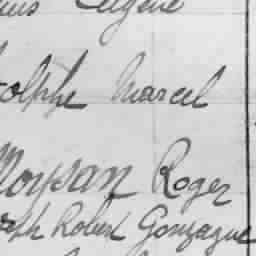 Eugène
olphe Marcel
Moysan Roger
eph Robert Gonzague